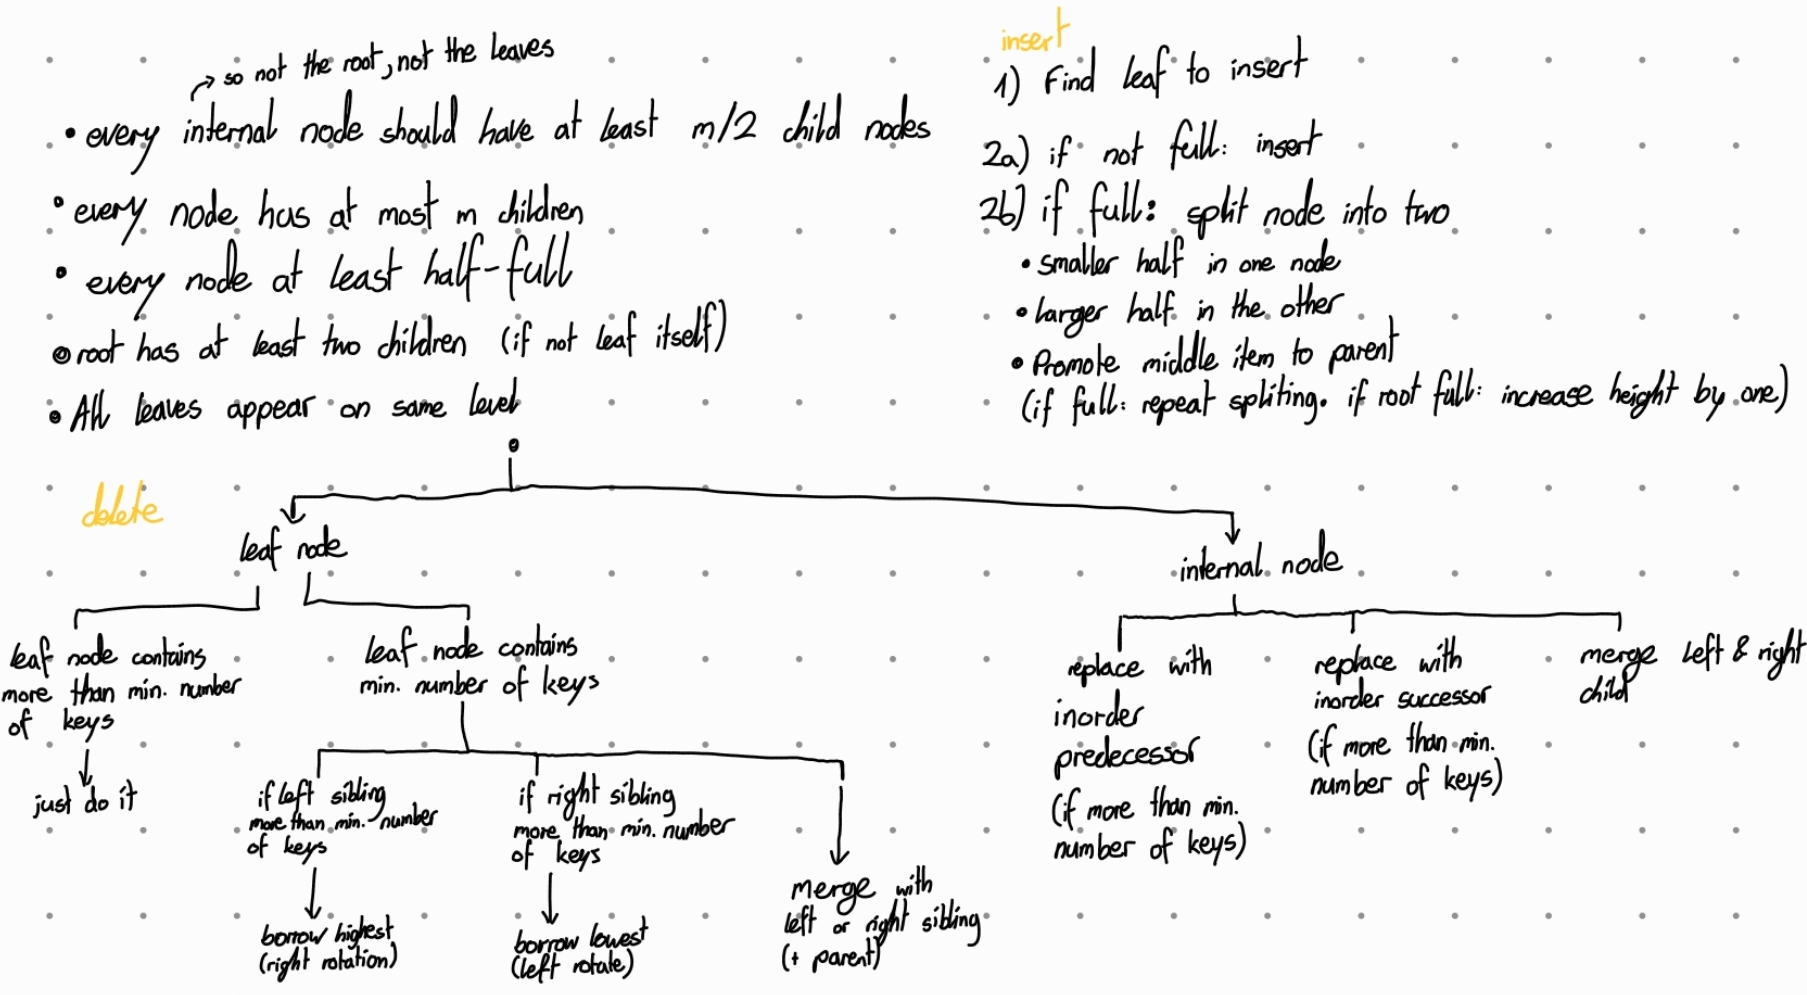 so not the root, not the leaves
• every internal node should have at least m/2 child nodes
• every node has at most m children
• every node at least half-full
• root has at least two children (if not leaf itself)
• All leaves appear on same level
insert
1) Find leaf to insert
2a) if not full: insert
2b) if full: split node into two
• smaller half in one node
• larger half in the other
• Promote middle item to parent
(if full: repeat spliting. if root full: increase height by one)
delete
leaf node
leaf node contains
more than min. number
of keys
just do it
leaf node contains
min. number of keys
if left sibling
more than min. number
of keys
borrow highest
(right rotation)
if right sibling
more than min. number
of keys
borrow lowest
(left rotate)
merge with
left or right sibling
(+ parent)
internal node
replace with
inorder
predecessor
(if more than min.
number of keys)
replace with
inorder successor
(if more than min.
number of keys)
merge left & right
child